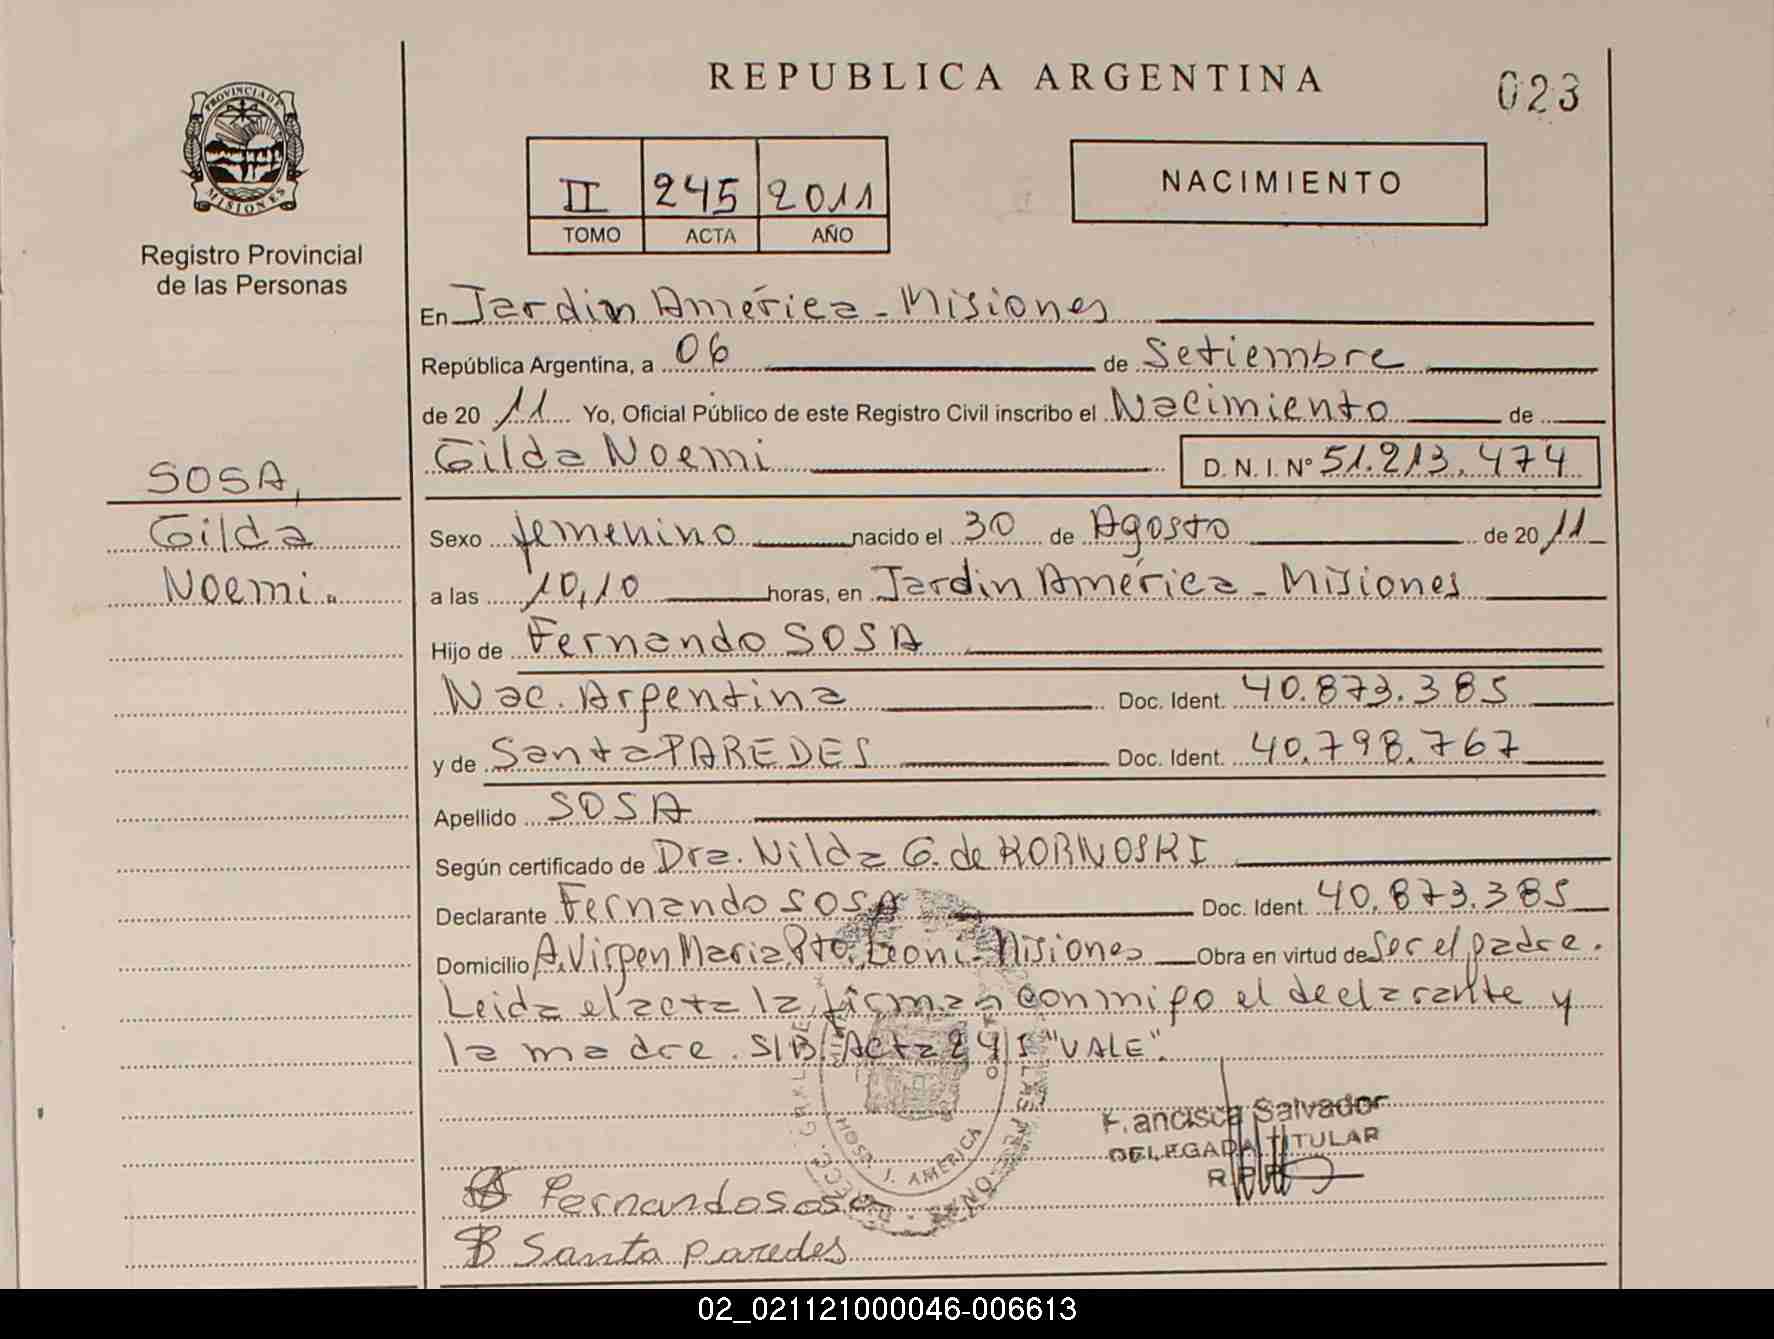 REPUBLICA ARGENTINA
023
PROVINCIA DE
MISIONES
Registro Provincial
de las Personas
II 245 2011
TOMO ACTA AÑO
NACIMIENTO
En Jardin América - Misiones
República Argentina, a 06 de Setiembre
de 2011 Yo, Oficial Público de este Registro Civil inscribo el Nacimiento de
Gilda Noemi D. N. I. N° 51.213.474
SOSA,
Gilda
Noemi.
Sexo femenino nacido el 30 de Agosto de 2011
a las 10,10 horas, en Jardin América - Misiones
Hijo de Fernando SOSA
Nac. Argentina Doc. Ident. 40.873.385
y de Santa PAREDES Doc. Ident. 40.798.767
Apellido SOSA
Según certificado de Dra. Nilda G. de KORNOSKI
Declarante Fernando SOSA Doc. Ident. 40.873.385
Domicilio A. Virgen Maria Pto. Leoni - Misiones Obra en virtud de Ser el padre.
Leida el acta la firman conmigo el declarante y
la madre. S/B. Acta 245 "VALE".
HOSP. J. AMERICA
Francisca Salvador
DELEGADA TITULAR
R.P.P.
Fernando sosa
Santa paredes
02_021121000046-006613